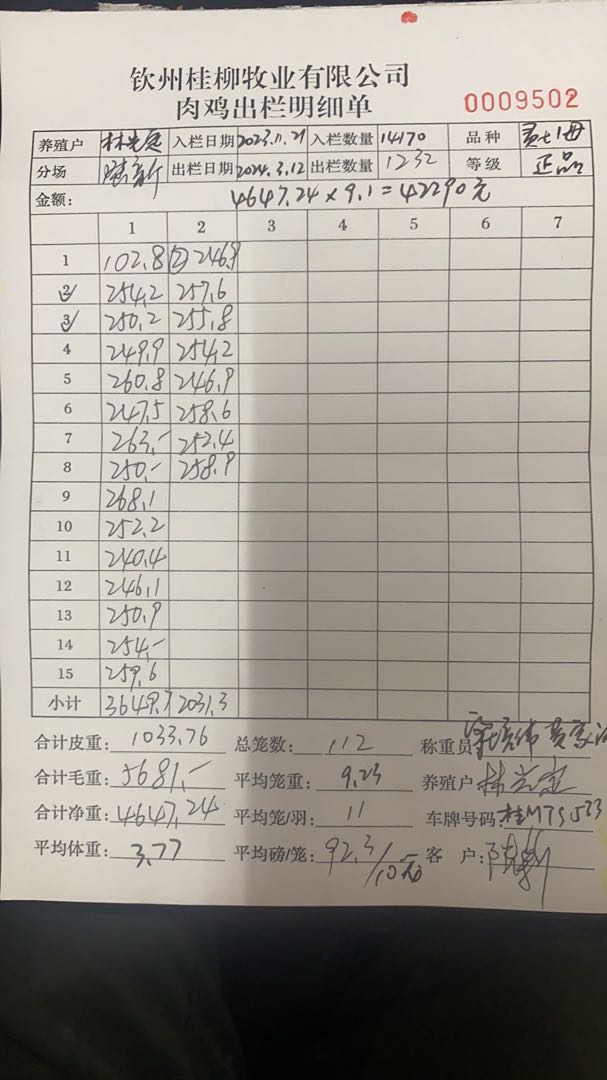 钦州桂柳牧业有限公司
肉鸡出栏明细单 0009502
养殖户 林 入栏日期 2023.11.21 入栏数量 14170 品种
分场 出栏日期 2024.3.12 出栏数量 1232 等级 正品
金额: 4647.24×9.1=42290元
1 2 3 4 5 6 7
1 102.8 ② 246.9
2 254.2 257.6
3 250.2 255.8
4 249.9 254.2
5 260.8 246.9
6 247.5 258.6
7 263.- 252.4
8 250.- 258.9
9 268.1
10 252.2
11 240.4
12 246.1
13 250.9
14 254.-
15 259.6
小计 3649.7 2031.3
合计皮重: 1033.76 总笼数: 112 称重员
合计毛重: 5681.- 平均笼重: 9.23 养殖户 林
合计净重: 4647.24 平均笼/羽: 11 车牌号码: 桂M79523
平均体重: 3.77 平均磅/笼: 92.3/10元 客 户: